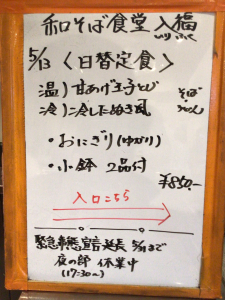 和そば食堂 入福
5/13 〈日替定食〉
温) 甘あげ玉子とじ そば
冷) 冷したぬき風 うどん
・おにぎり(ゆかり)
・小鉢 2品付
¥850.-
入口こちら
緊急事態宣言延長 5/31まで
夜の部 休業中
(17:30〜)